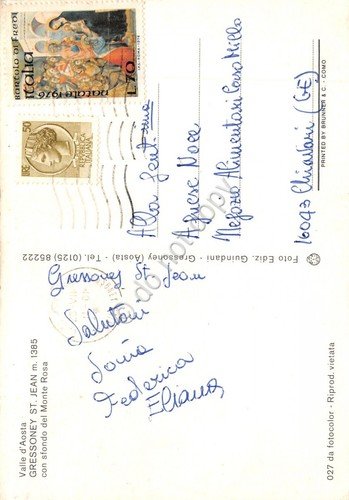 BARTOLO DI FREDI
italia
natale 1976
L.70
50
Alla Gent.ma
Agnese Noce
Negozio Alimentari Corso Millo
16043 Chiavari (GE)
PRINTED BY BRUNNER & C. - COMO
Foto Ediz. Guindani - Gressoney (Aosta) - Tel. (0125) 855222
Gressoney St. Jean
Salutoni
Sonia
Federica
Eliana
Valle d'Aosta
GRESSONEY ST. JEAN m. 1385
con sfondo del Monte Rosa
027 da fotocolor - Riprod. vietata